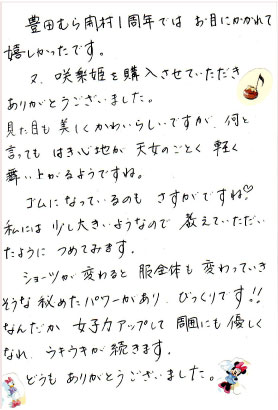 豊田むら開村1周年では お目にかかれて
嬉しかったです。
又、咲楽姫を購入させていただき
ありがとうございました。
見た目も 美しくかわいらしいですが、何と
言っても はき心地が 天女のごとく 軽く
舞い上がるようですね。
ゴムになっているのも さすがですね♡
私には 少し大きいようなので 教えていただい
たように つめてみます。
ショーツが変わると 服全体も 変わっていき
そうな 秘めたパワーがあり、びっくりです!!
なんだか 女子力アップして 周囲にも 優しく
なれ、ウキウキが 続きます。
どうも ありがとうございました。